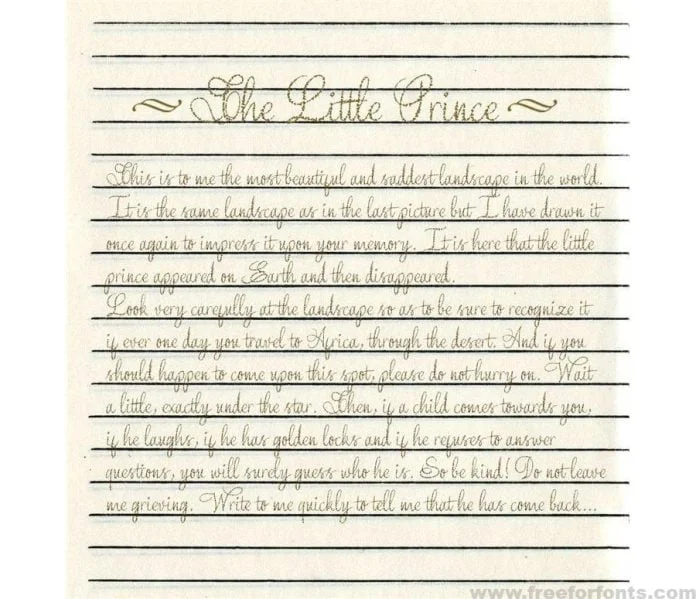 ~ The Little Prince ~
This is to me the most beautiful and saddest landscape in the world.
It is the same landscape as in the last picture but I have drawn it
once again to impress it upon your memory. It is here that the little
prince appeared on Earth and then disappeared.
Look very carefully at the landscape so as to be sure to recognize it
if ever one day you travel to Africa, through the desert. And if you
should happen to come upon this spot, please do not hurry on. Wait
a little, exactly under the star. Then, if a child comes towards you,
if he laughs, if he has golden locks and if he refuses to answer
questions, you will surely guess who he is. So be kind! Do not leave
me grieving. Write to me quickly to tell me that he has come back...
www.freeforfonts.com